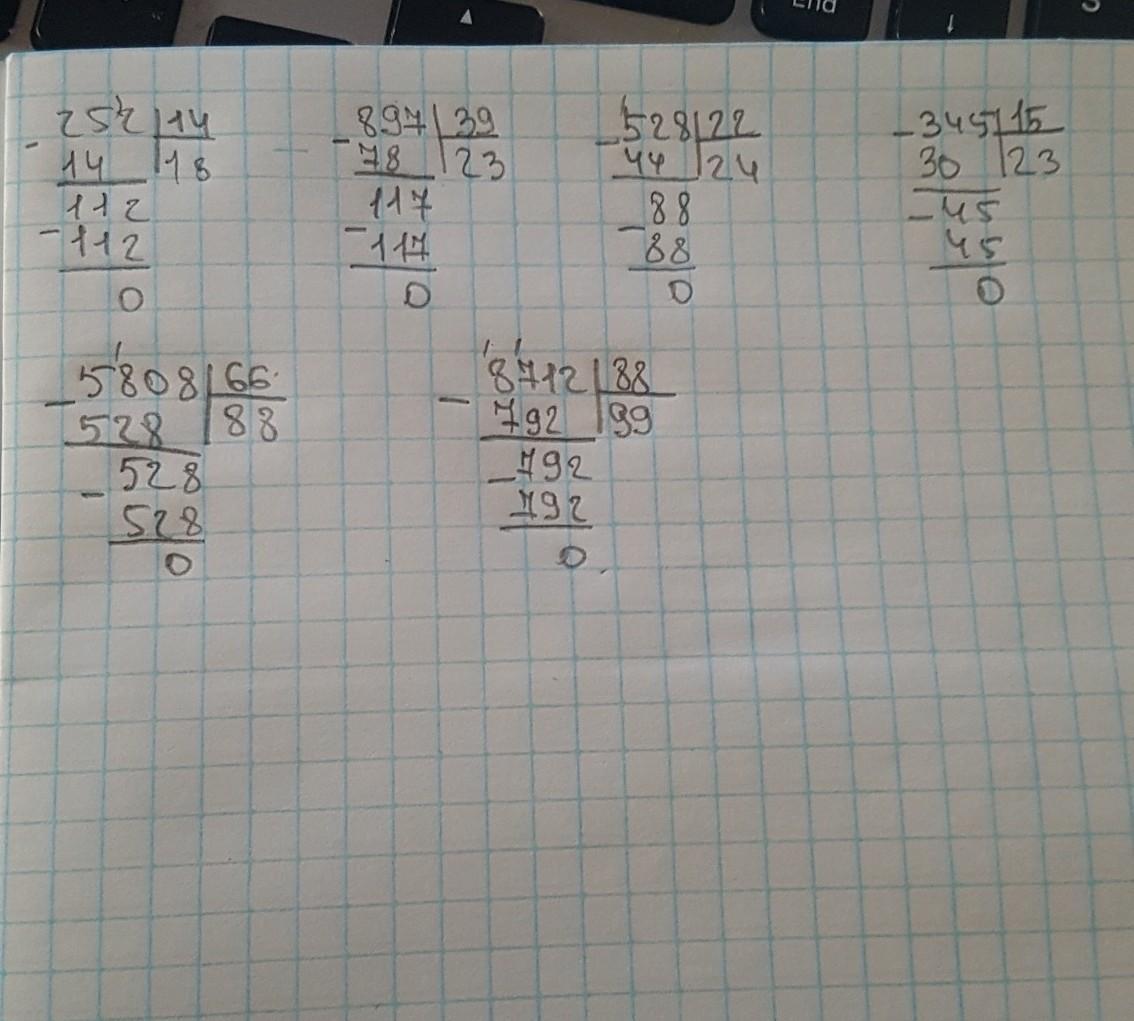 End
252 14
- 14 18
112
- 112
0
- 897 39
78 23
117
- 117
0
- 528 22
44 24
88
- 88
0
- 345 15
30 23
- 45
45
0
- 5808 66
528 88
- 528
528
0
- 8712 88
792 99
- 792
792
0